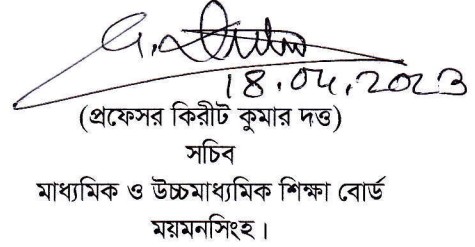 18.04.2023
(প্রফেসর কিরীট কুমার দত্ত)
সচিব
মাধ্যমিক ও উচ্চমাধ্যমিক শিক্ষা বোর্ড
ময়মনসিংহ।